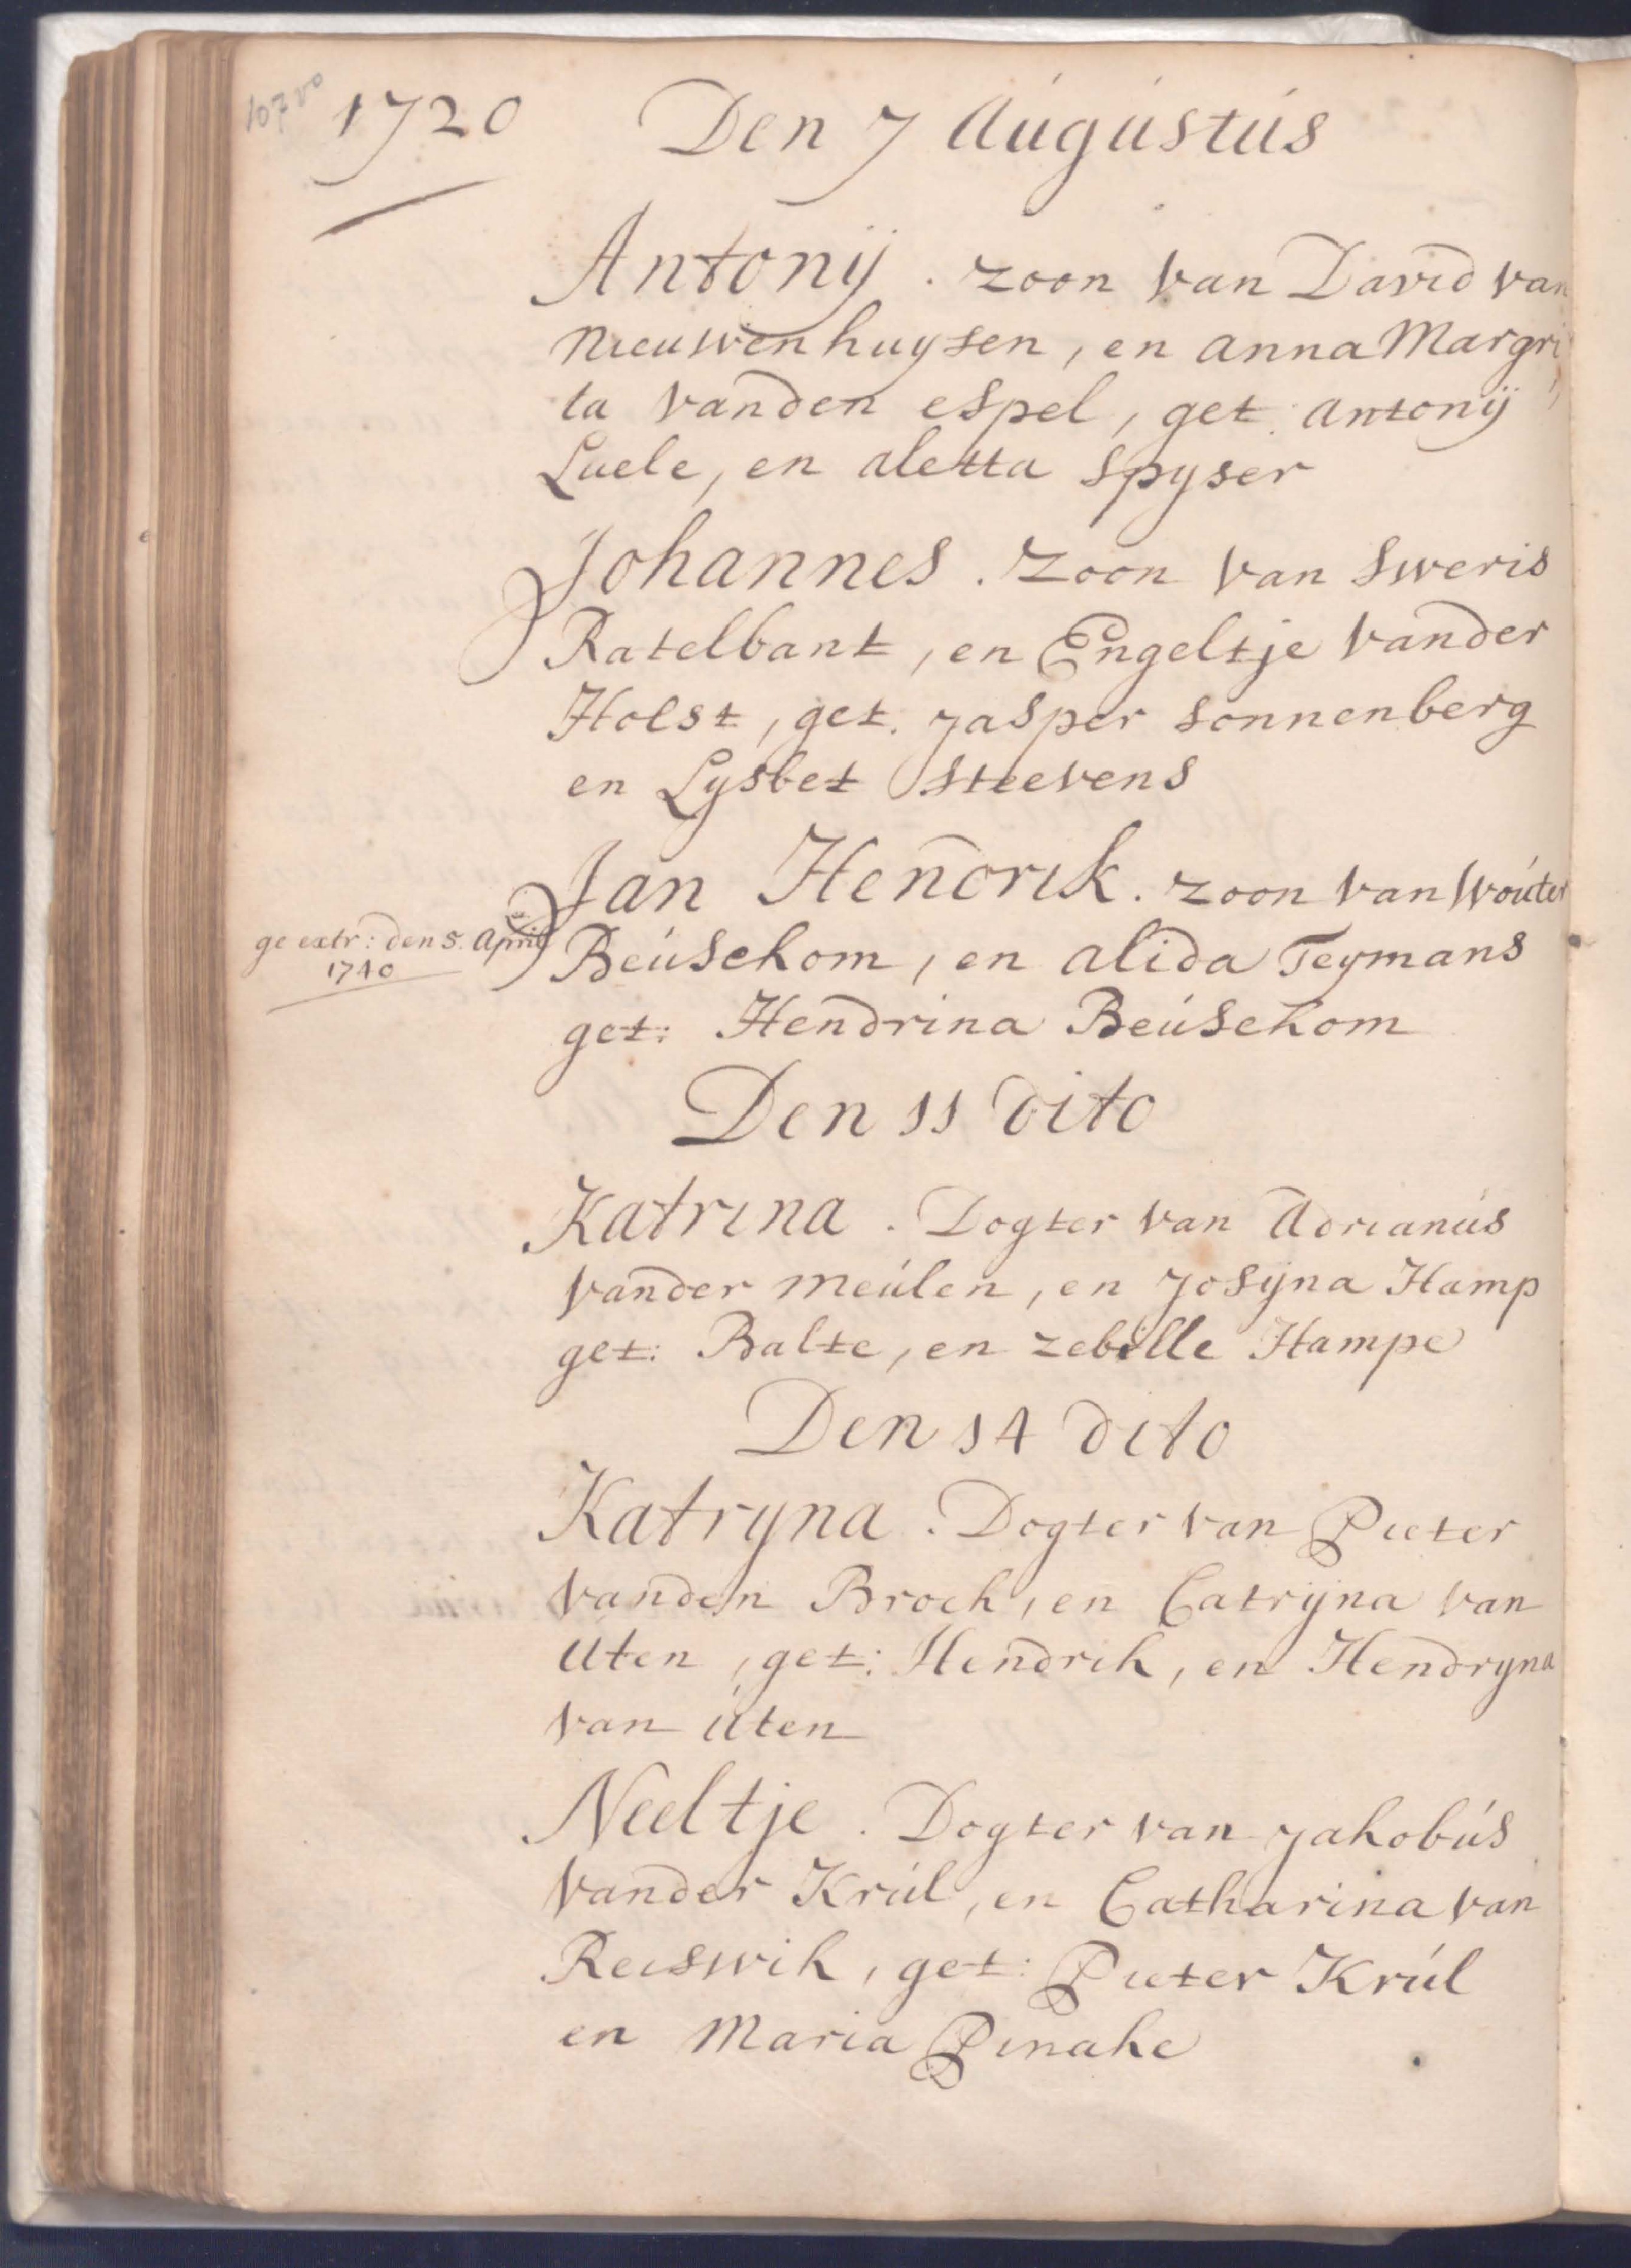 107vo
1720 Den 7 Augústús
Antonij . zoon van David van
Nieuwenhuysen, en anna Margri
ta vanden espel, get: antonij
Luele, en aletta spyser
Johannes . zoon van Sweris
Ratelbant, en Engeltje vander
Holst, get. jasper sonnenberg
en Lysbet Steevens
Jan Hendrik. zoon van Wouter
ge extr: den 5. April
1740
Beúsekom, en alida Teymans
get: Hendrina Beúsekom
Den 11 dito
Katrina . Dogter van Adrianús
vander meúlen, en josijna Hamp
get: Balte, en zebille Hampe
Den 14 dito
Katryna . Dogter van Pieter
vanden Broek, en Catrijna van
Uten, get: Hendrik, en Hendryna
van úten
Neeltje . Dogter van jakobús
vander Krúl, en Catharina van
Reiswik, get: Pieter Krúl
en Maria Pinake